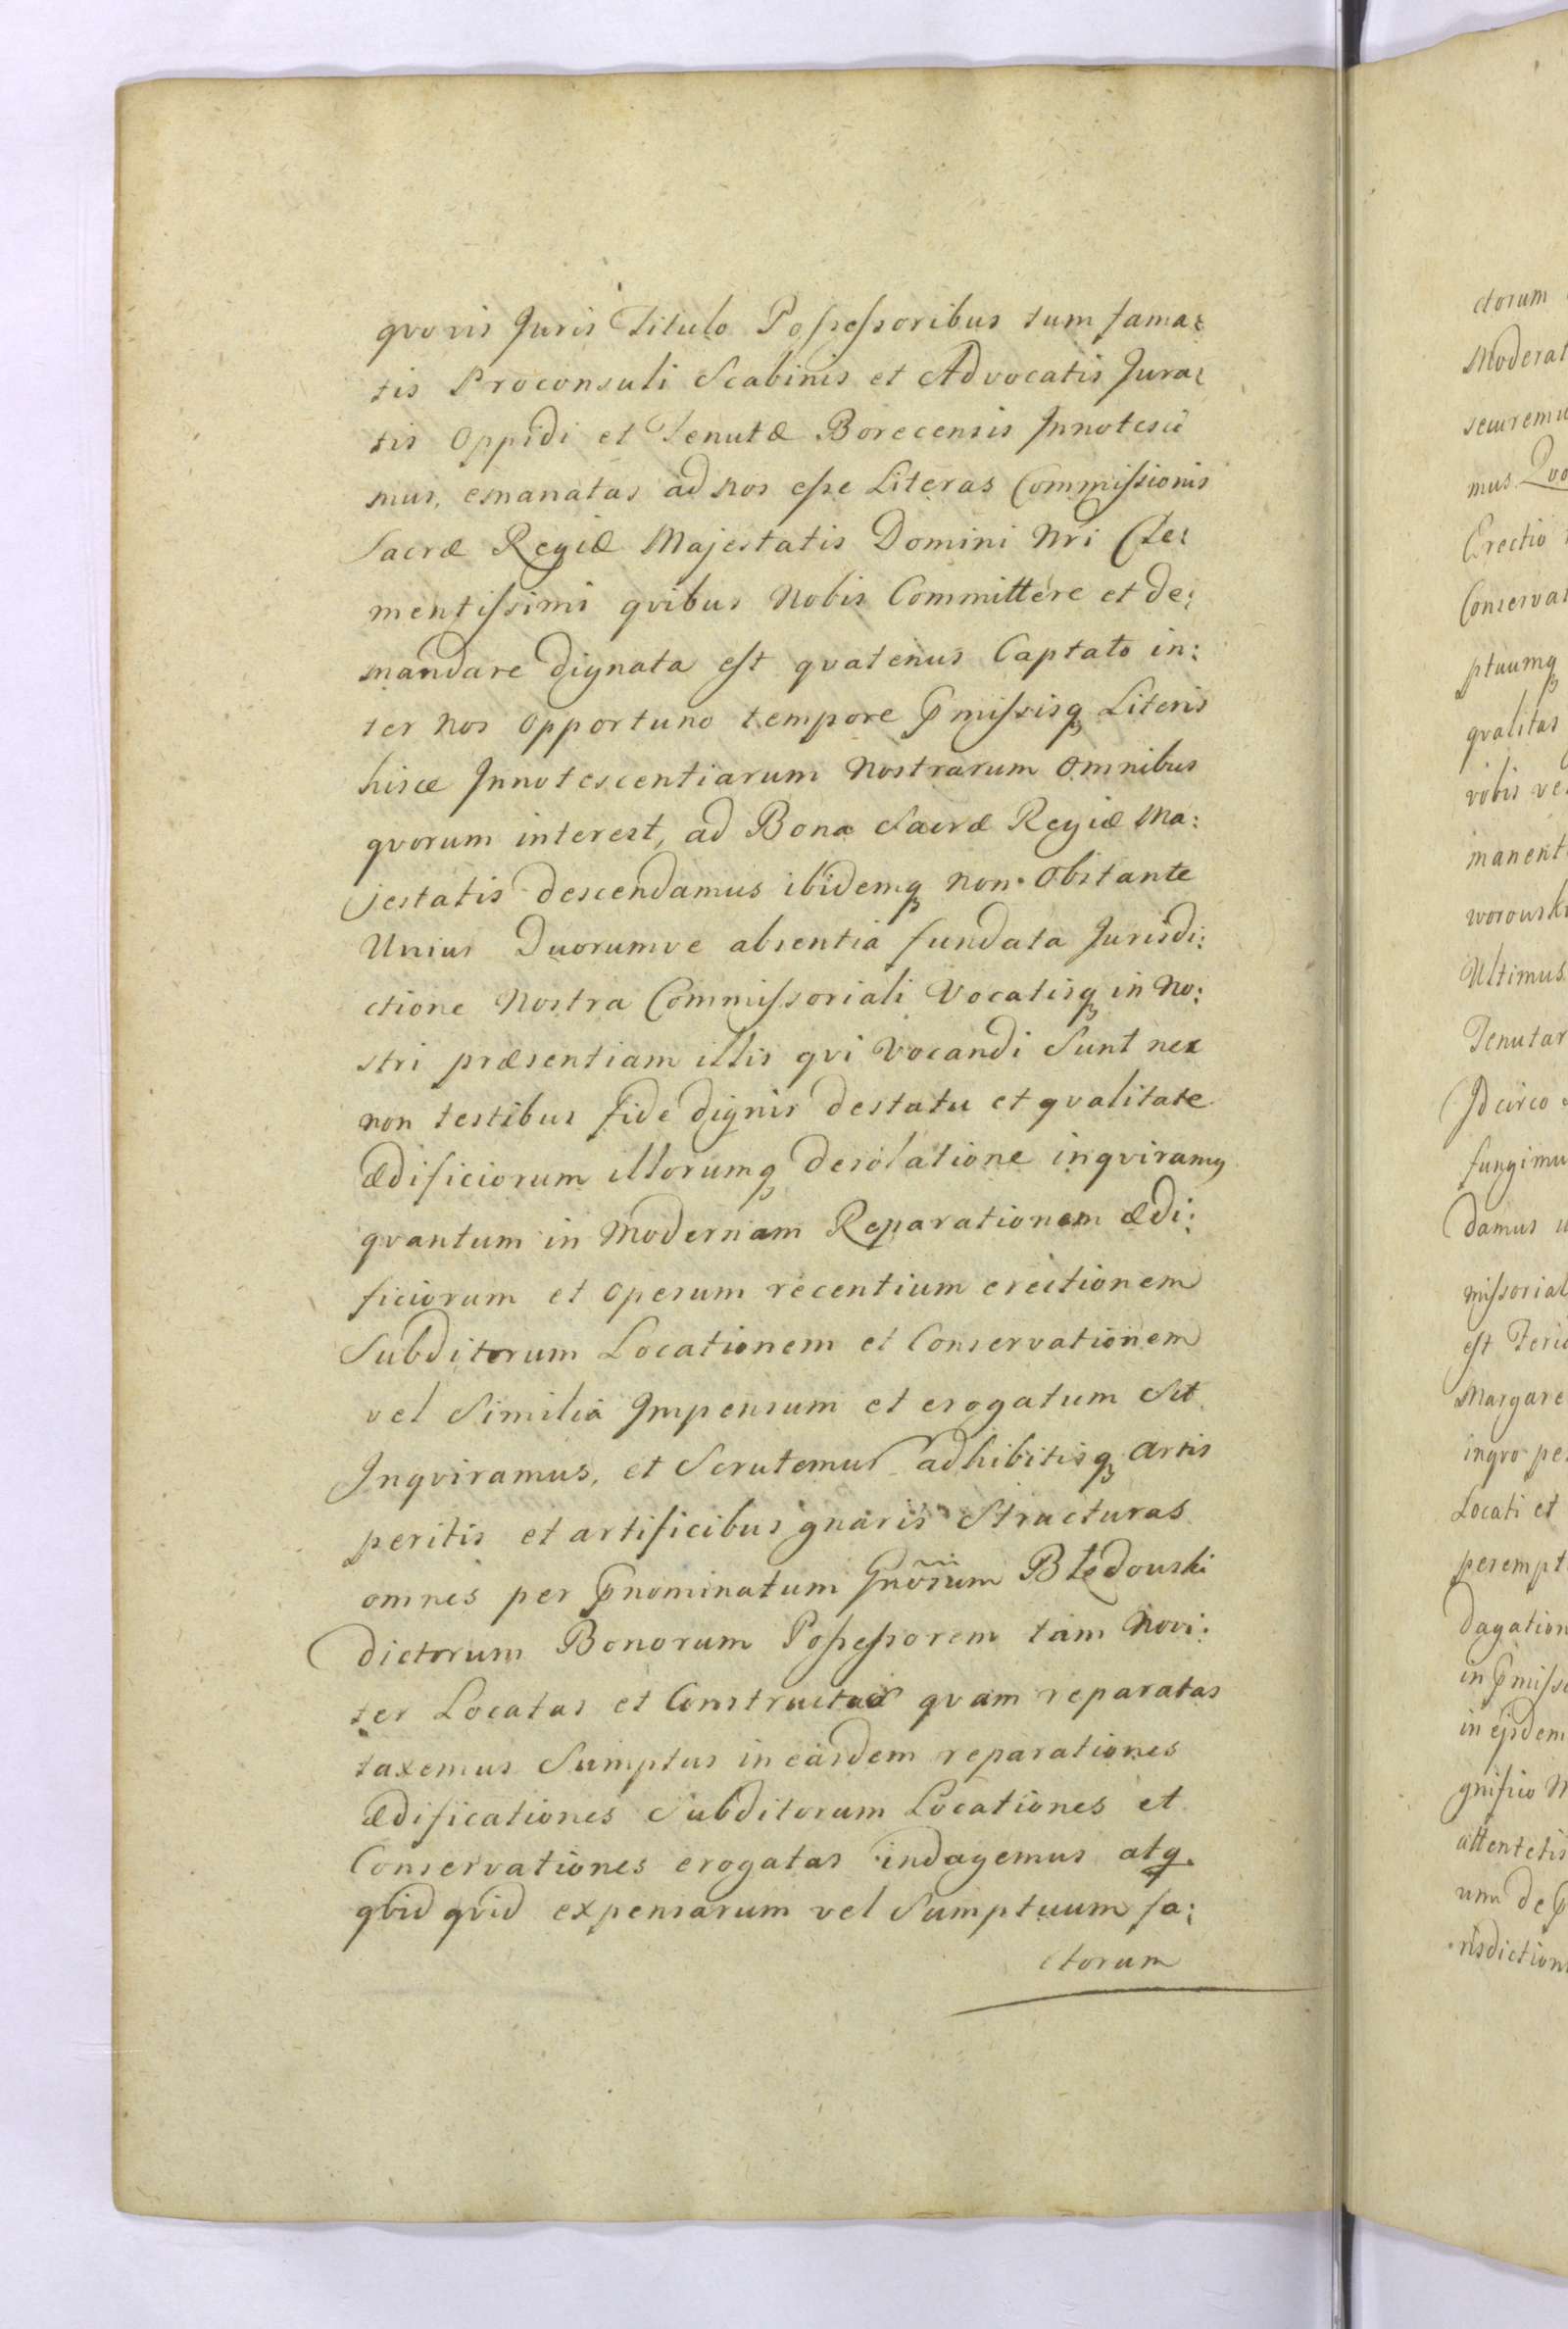 qvovis Juris Titulo Possessoribus tum fama:
tis Proconsuli Scabinis et Advocatis Jura:
tis Oppidi et Tenutæ Borecensis Innotesci
mus, emanatas ad nos esse Literas Commissionis
Sacræ Regiæ Majestatis Domini Nri Cle:
mentissimi qvibus Nobis Committere et de:
mandare dignata est qvatenus Captato in:
ter nos opportuno tempore Pmissisq Literis
hisce Innotescentiarum Nostrarum Omnibus
qvorum interest, ad Bona Sacræ Regiæ Ma:
jestatis descendamus ibidemq non Obstante
Unius Duorumve absentia fundata Jurisdi:
ctione Nostra Commissoriali Vocatisq in No:
stri præsentiam illis qvi Vocandi Sunt nec
non testibus fide dignis destatu et qvalitate
ædificiorum illorumq desolatione inqviramq
qvantum in Modernam Reparationem ædi:
ficiorum et operum recentium erectionem
Subditorum Locationem et Conservationem
vel Similia Impensum et erogatum Sit
Inqviramus, et Scrutemur adhibitisq artis
peritis et artificibus gnaris Structuras
omnes per Pnominatum Gnosum Błędowski
dictorum Bonorum Possessorem tam Novi:
ter Locatas et Constructas qvam reparatas
taxemus Sumptus in easdem reparationes
ædificationes Subditorum Locationes et
Conservationes erogatas indagemus atq.
qvid qvid expensarum vel Sumptuum fa:
ctorum
ctorum
Moderat
mus Qvo
Erectio
Conservat
ptuumq
qvalitas
vobis ve
manent
worowski
Ultimus
Tenutar
Idcirco
fungimu
damus
missorial
est Feri
Margare
ingvo pe
Locati et
perempt
dagation
in Pmiss
in ejsdem
gnifico M
attentetis
um de P
risdiction